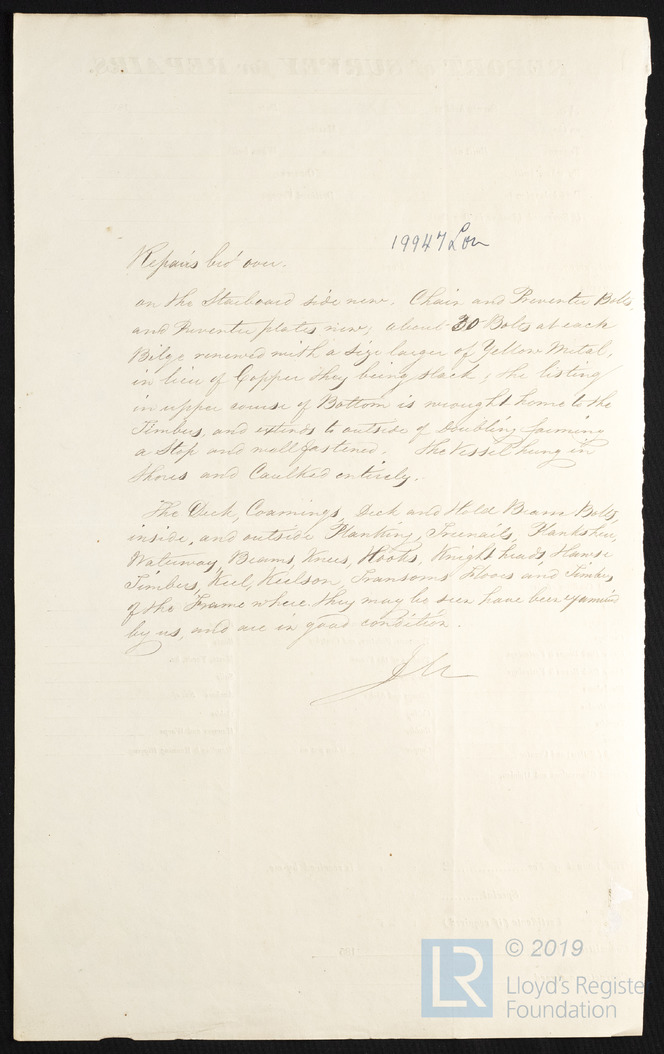 REPORT of SURVEY for REPAIRS.
19947 Lon
Repairs &c'd over.
on the Starboard side new. Chain and Preventer Bolts
and Preventer plates new, about 30 Bolts at each
Bilge renewed with a size larger of Yellow Metal,
in lieu of Copper they being slack; the listing
in upper course of Bottom is wrought home to the
Timbers, and extends to outside of Doubling forming
a Stop and well fastened. The Vessel hung in
Shores and Caulked entirely.
The Deck, Coamings, Deck and Hold Beam Bolts,
inside, and outside Planking, Treenails, Plankshear,
Waterway, Beams, Knees, Hooks, Knight heads Hawse
Timbers, Keel, Keelson, Transoms Floors and Timbers
of the Frame where they may be seen have been examined
by us, and are in good condition.
185
LR
© 2019
Lloyd's Registe
Foundation